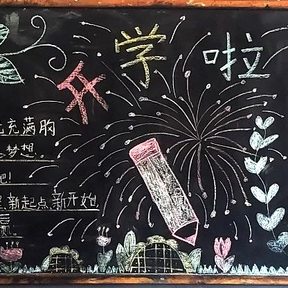 开学啦
充满
梦想，
吧！
新起点新开始